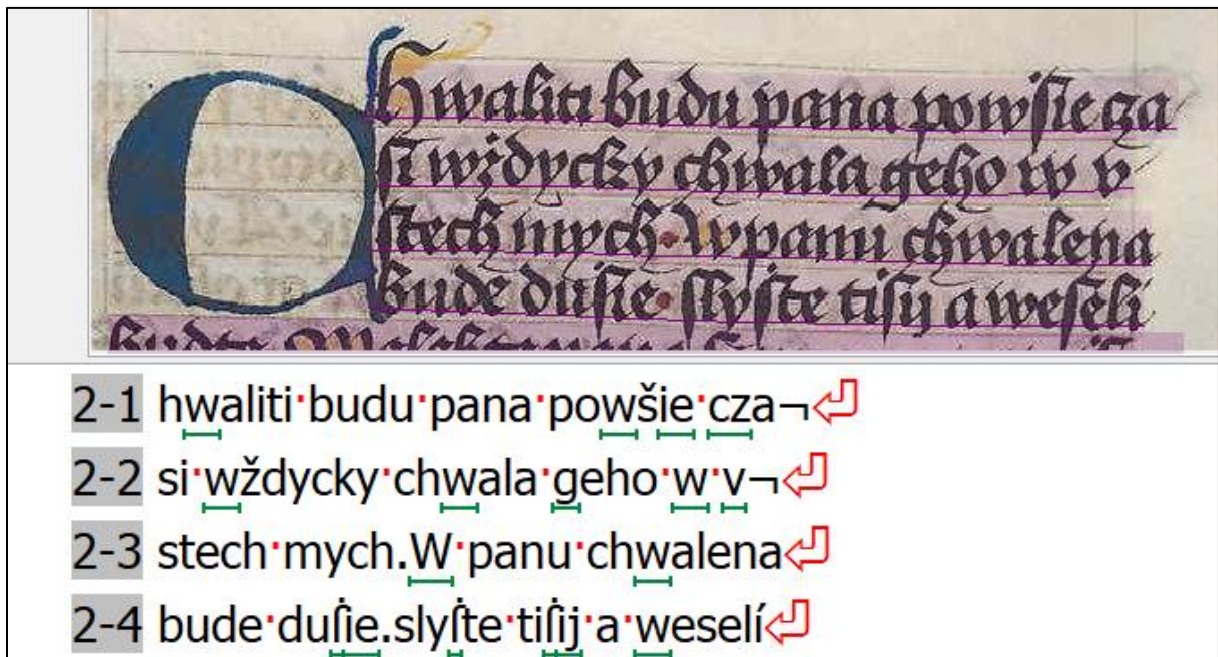 Chwaliti budu pana powẛie cza
ſi wżdycky chwala geho w v
ſtech mych. W panu chwalena
bude duẛie. ſlyẛte tiẛij a weſelí
budte
2-1 hwaliti budu pana powšie cza¬
2-2 si wždycky chwala geho w v¬
2-3 stech mych.W panu chwalena
2-4 bude duẛie.slyẛte tiẛij a weselí